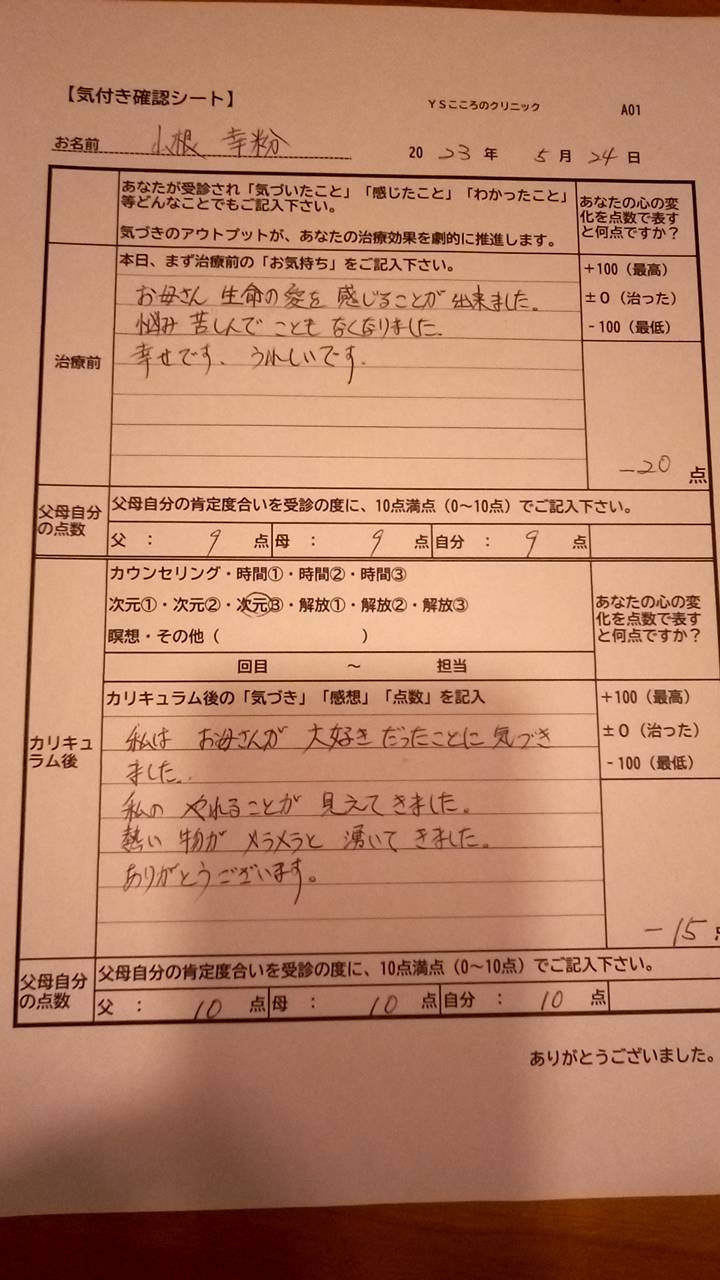 【気付き確認シート】 YSこころのクリニック A01
お名前 小根 幸粉 2023年 5月 24日
あなたが受診され「気づいたこと」「感じたこと」「わかったこと」
等どんなことでもご記入下さい。
気づきのアウトプットが、あなたの治療効果を劇的に推進します。
あなたの心の変
化を点数で表す
と何点ですか？
治療前
本日、まず治療前の「お気持ち」をご記入下さい。
お母さん 生命の愛を 感じることが 出来ました。
悩み 苦しんで こともなくなりました。
幸せです、うれしいです。
+100（最高）
±0（治った）
-100（最低）
-20 点
父母自分
の点数
父母自分の肯定度合いを受診の度に、10点満点（0〜10点）でご記入下さい。
父 ： 9 点 母 ： 9 点 自分 ： 9 点
カウンセリング・時間①・時間②・時間③
次元①・次元②・次元③・解放①・解放②・解放③
瞑想・その他（ ）
回目 〜 担当
あなたの心の変
化を点数で表す
と何点ですか？
カリキュ
ラム後
カリキュラム後の「気づき」「感想」「点数」を記入
私は お母さんが 大好きだったことに 気づき
ました。
私の やれることが 見えてきました。
熱い 物が メラメラと 湧いて きました。
ありがとうございます。
+100（最高）
±0（治った）
-100（最低）
-15
父母自分
の点数
父母自分の肯定度合いを受診の度に、10点満点（0〜10点）でご記入下さい。
父 ： 10 点 母 ： 10 点 自分 ： 10 点
ありがとうございました。